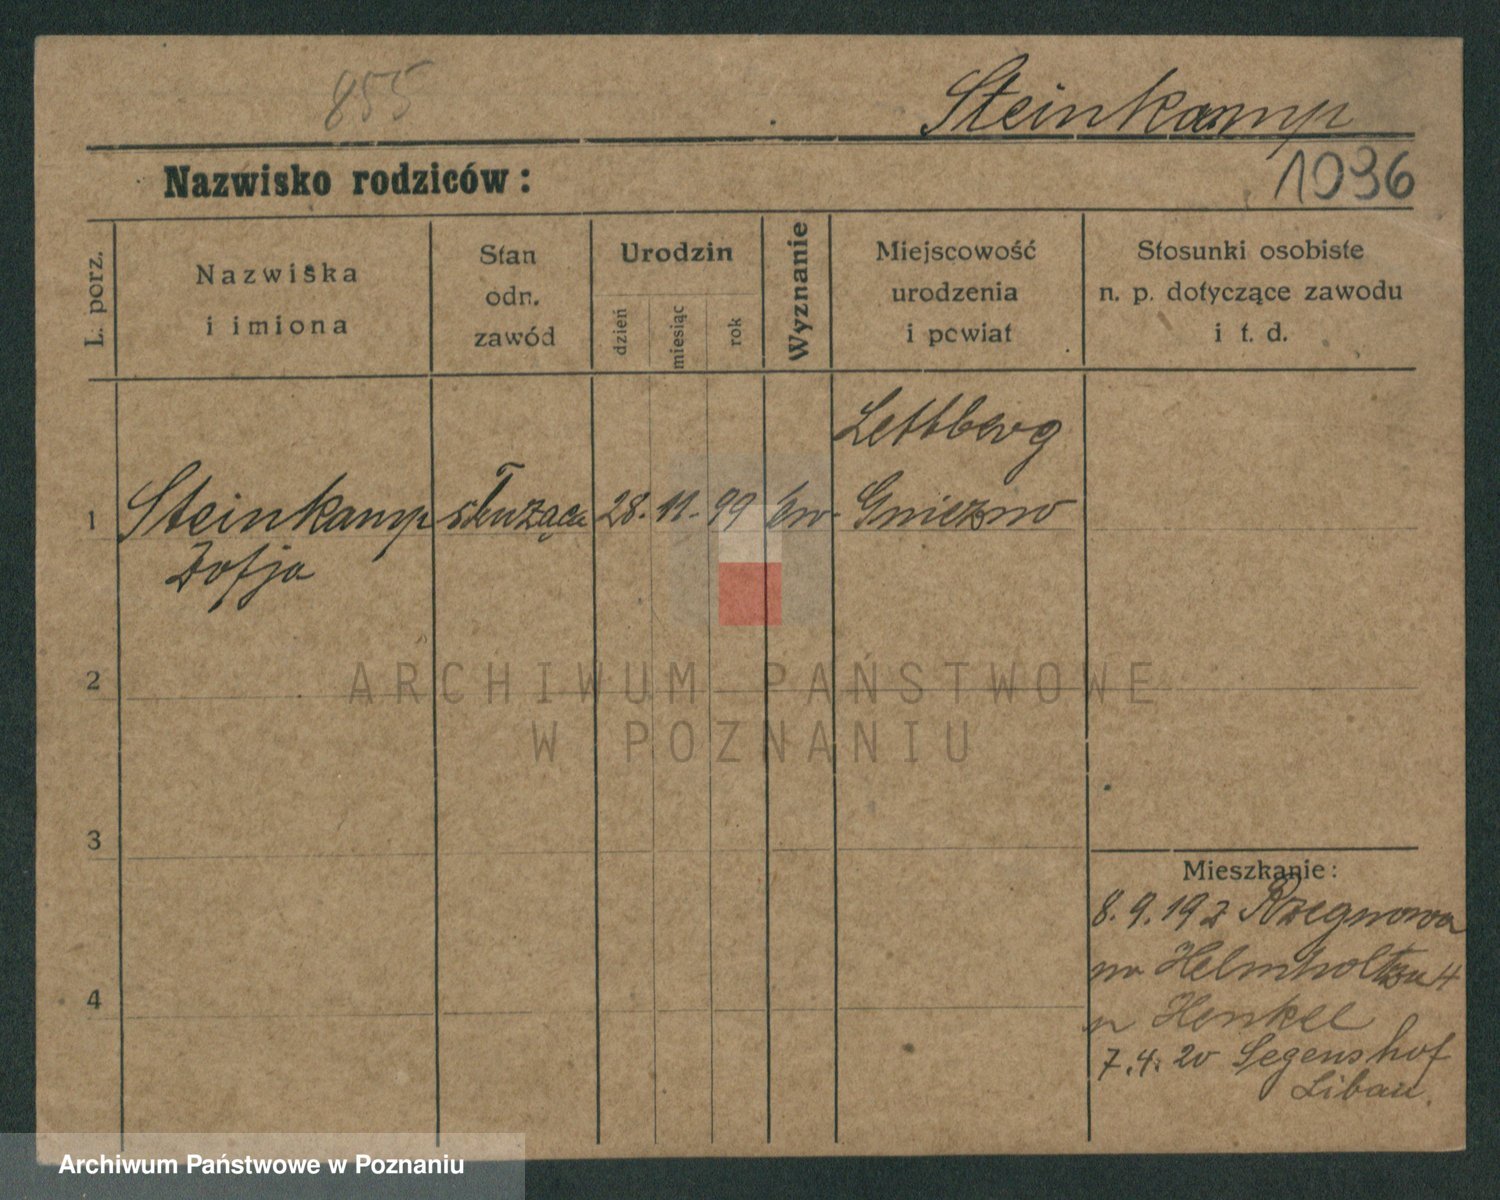 855
Steinkamp
1096
Nazwisko rodziców:
L. porz.
Nazwiska
i imiona
Stan
odn.
zawód
Urodzin
dzień
miesiąc
rok
Wyznanie
Miejscowość
urodzenia
i powiat
Stosunki osobiste
n. p. dotyczące zawodu
i t. d.
Lettberg
1 Steinkamp służąca 28. 11. 99 ew. Gniezno
Zofja
2
ARCHIWUM PAŃSTWOWE
W POZNANIU
3
Mieszkanie:
8. 9. 19 z
na Helmholtza 4
Henkel
4
7. 4. 20 Segenshof
Libau.
Archiwum Państwowe w Poznaniu